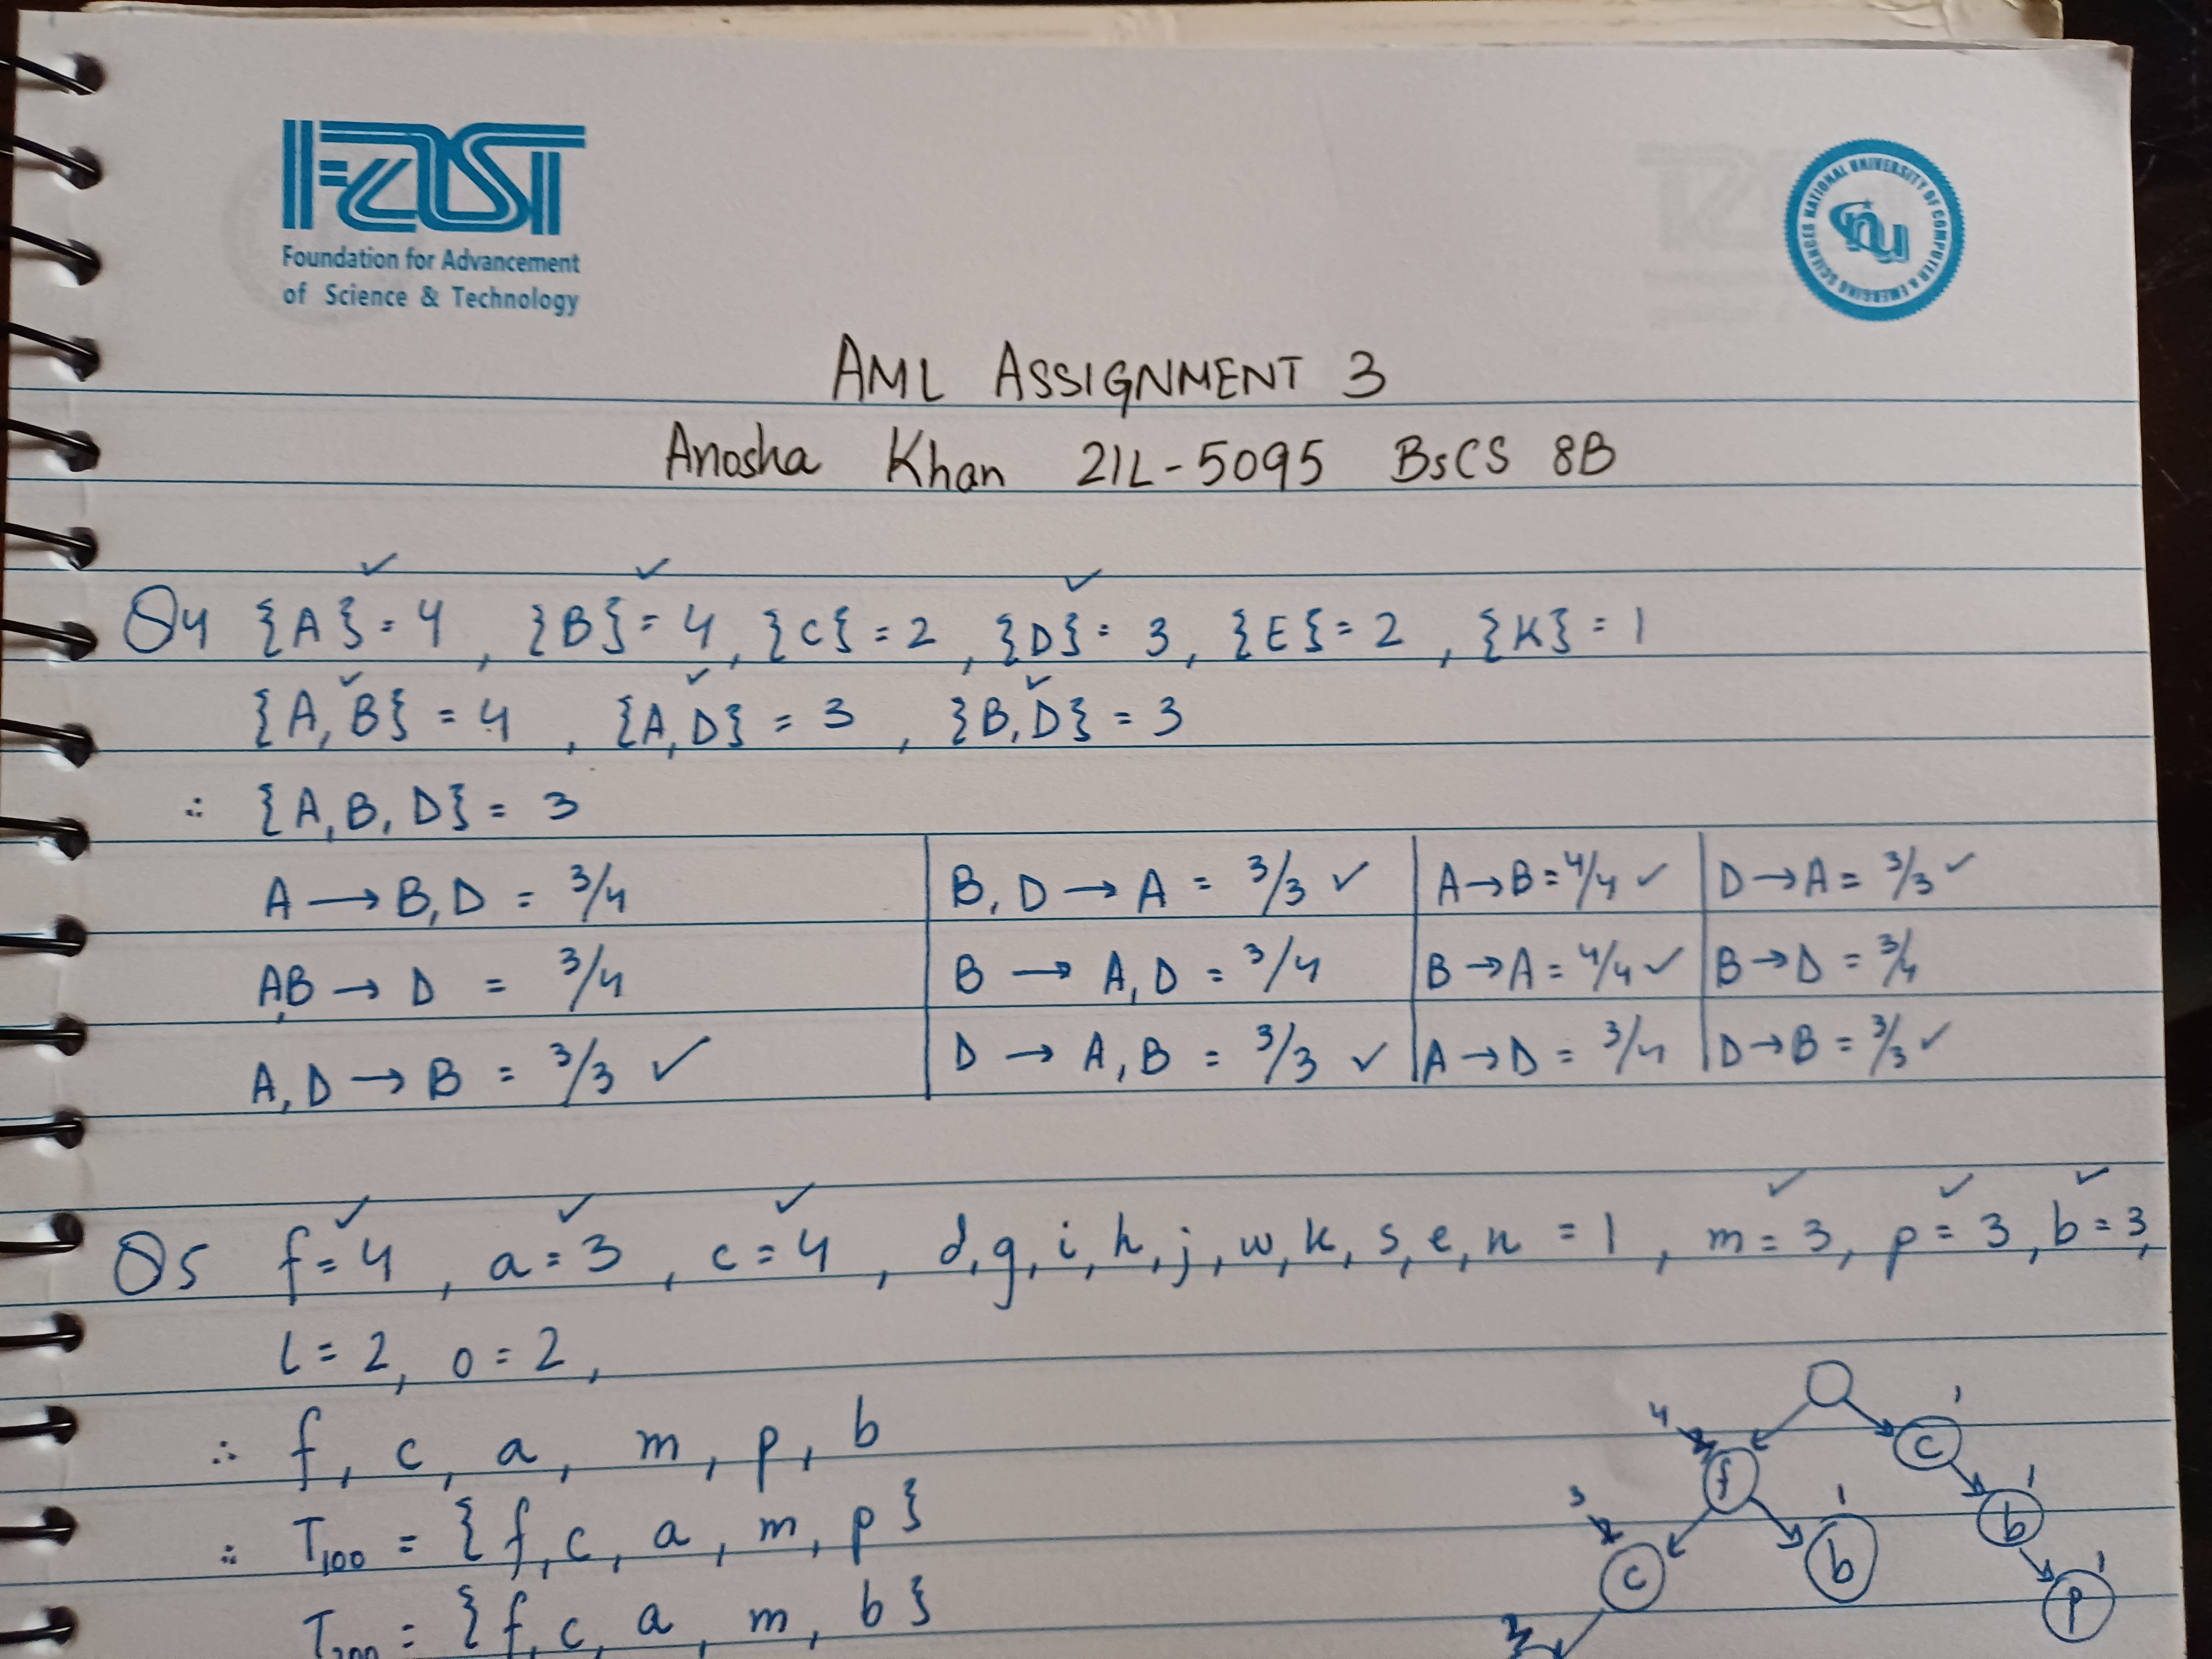 FAST
Foundation for Advancement
of Science & Technology
NATIONAL UNIVERSITY OF COMPUTER & EMERGING SCIENCES
nu
AML ASSIGNMENT 3
Anosha Khan 21L-5095 BsCS 8B
Q4 {A} = 4 ✓, {B} = 4 ✓, {C} = 2, {D} = 3 ✓, {E} = 2, {K} = 1
{A, B} = 4 ✓, {A, D} = 3 ✓, {B, D} = 3 ✓
∴ {A, B, D} = 3
A → B, D = 3/4 | B, D → A = 3/3 ✓ | A → B = 4/4 ✓ | D → A = 3/3 ✓
A,B → D = 3/4 | B → A, D = 3/4 | B → A = 4/4 ✓ | B → D = 3/4
A, D → B = 3/3 ✓ | D → A, B = 3/3 ✓ | A → D = 3/4 | D → B = 3/3 ✓
Q5 f = 4 ✓, a = 3 ✓, c = 4 ✓, d, g, i, h, j, w, k, s, e, n = 1, m = 3 ✓, p = 3 ✓, b = 3 ✓,
l = 2, o = 2,
∴ f, c, a, m, p, b
∴ T100 = {f, c, a, m, p}
T200 = {f, c, a, m, b}
4 f
1 c
3 c
1 b
1 b
1 p